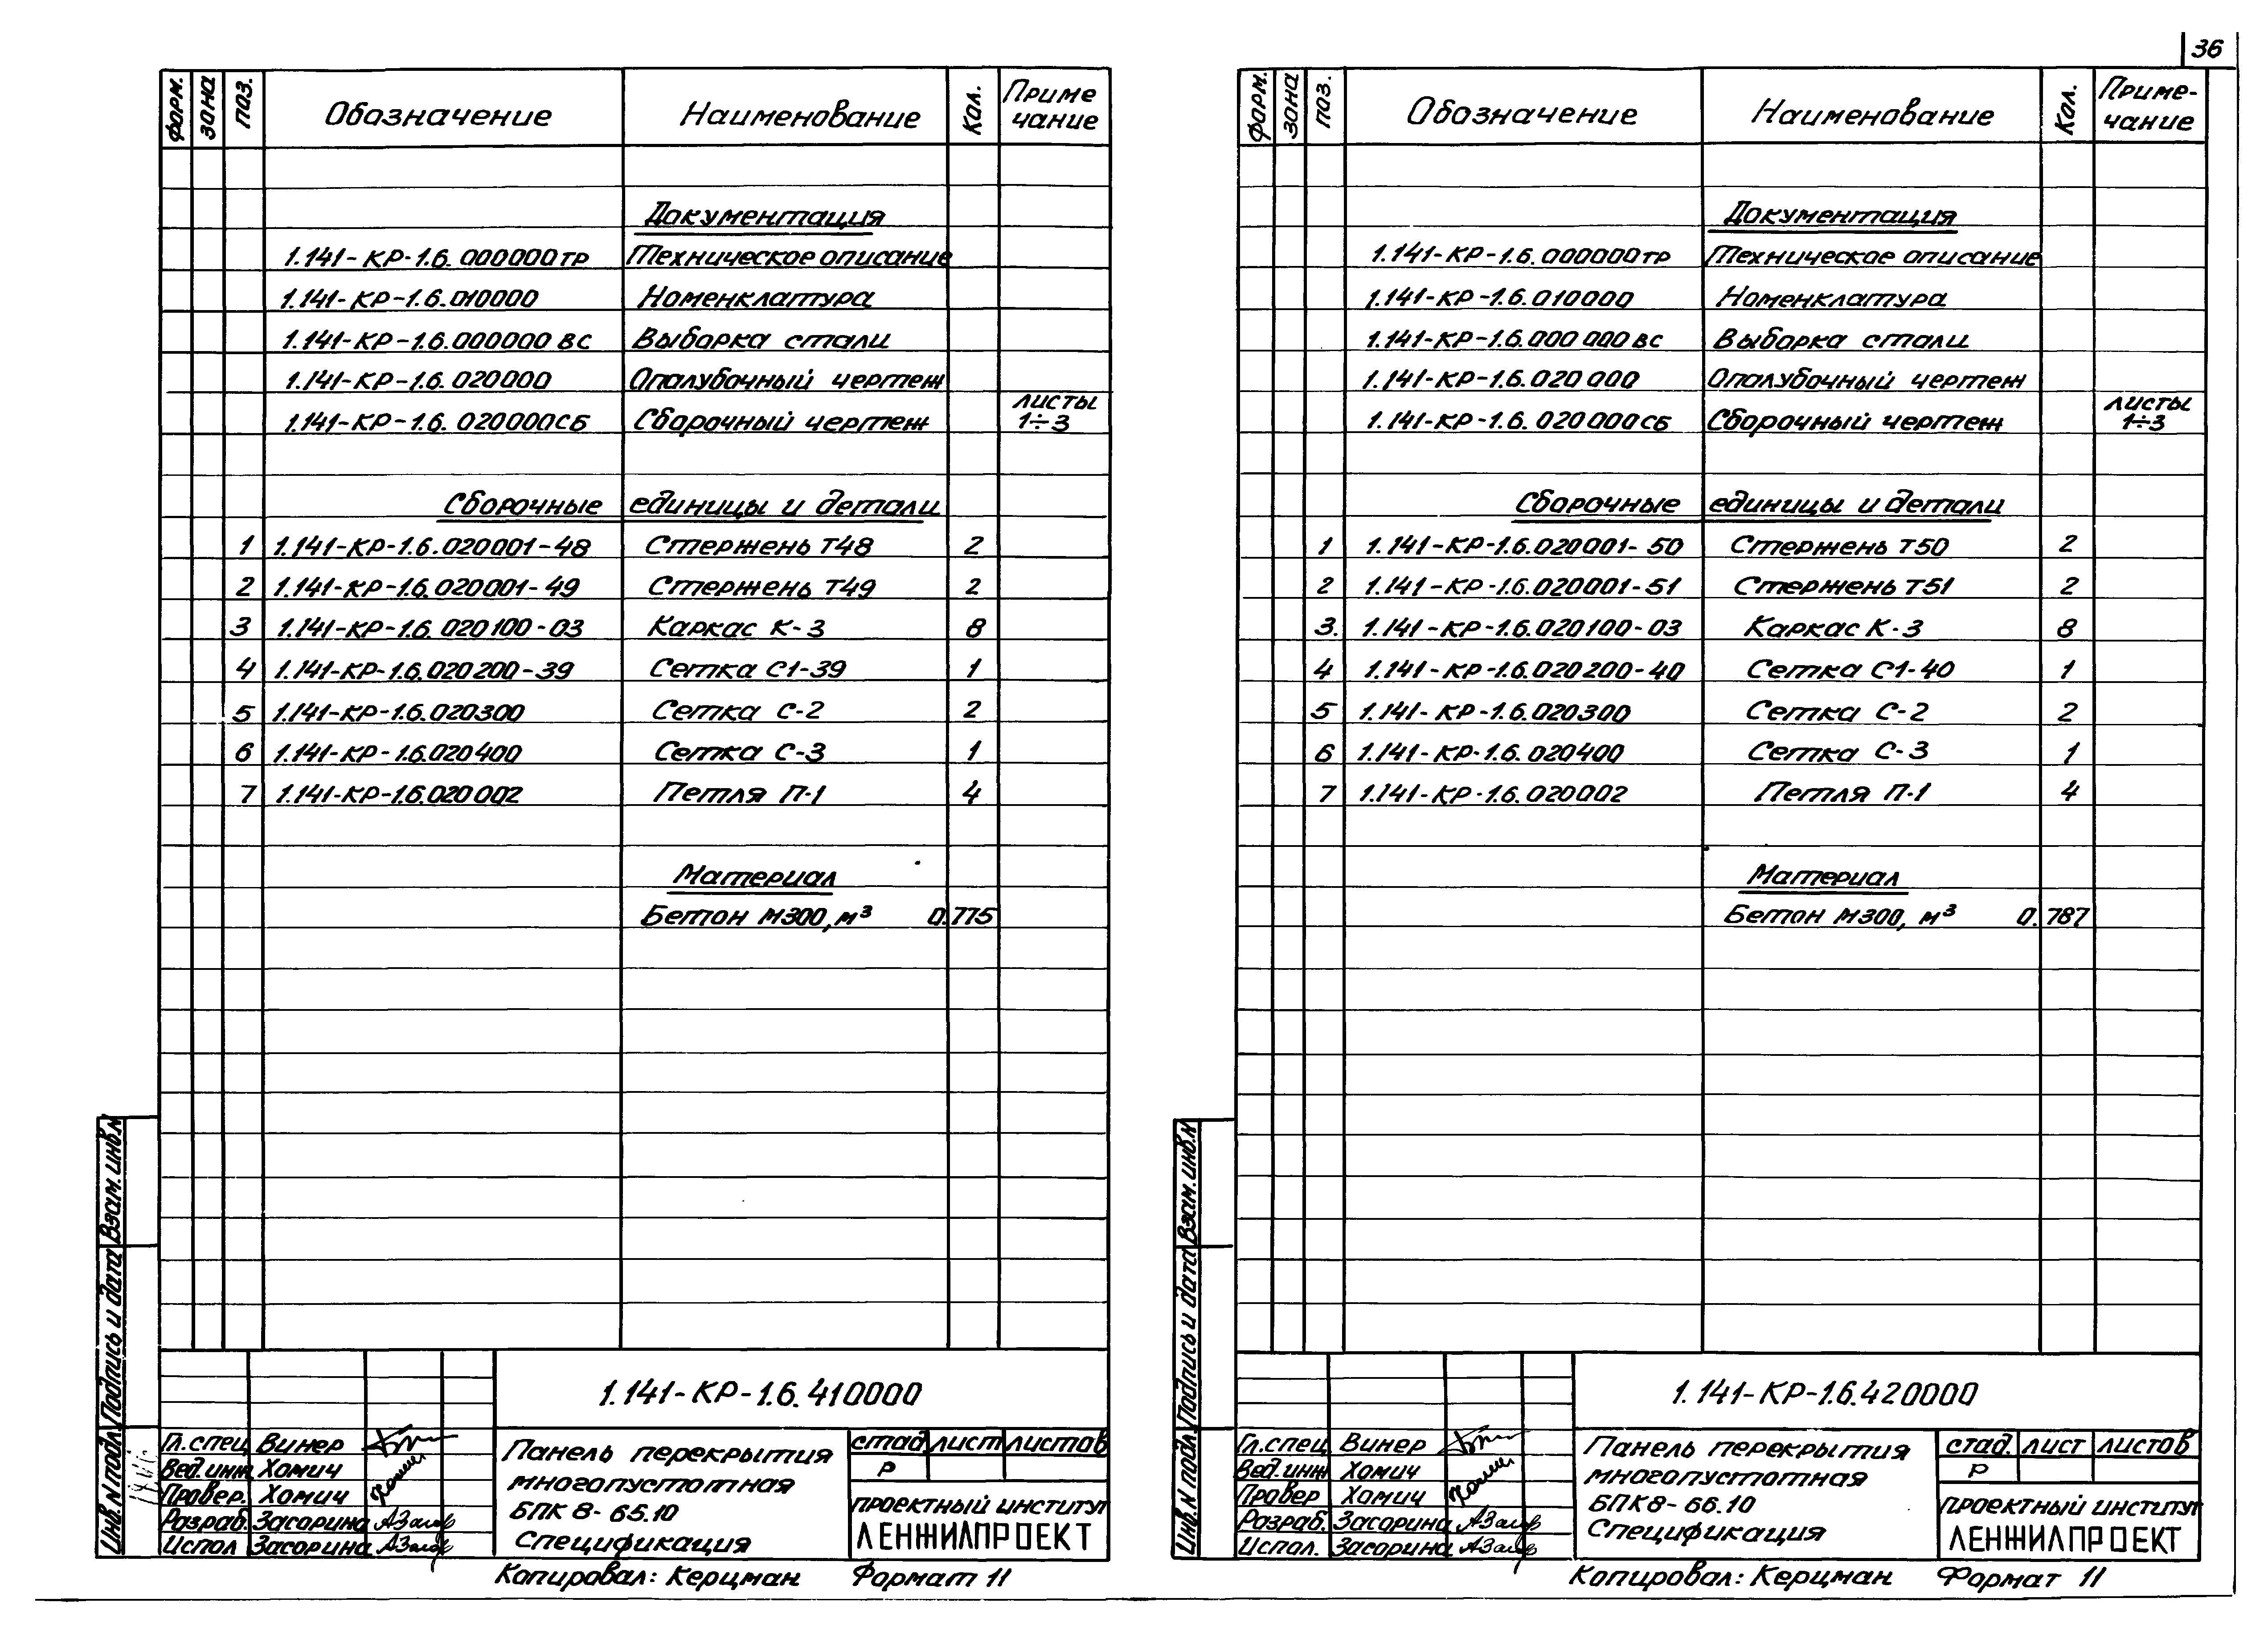 36
форм. зона поз. Обозначение Наименование Кол. Приме
чание
Документация
1.141-КР-1.6.000000ТР Техническое описание
1.141-КР-1.6.010000 Номенклатура
1.141-КР-1.6.000000ВС Выборка стали
1.141-КР-1.6.020000 Опалубочный чертеж
1.141-КР-1.6.020000СБ Сборочный чертеж листы
1÷3
Сборочные единицы и детали
1 1.141-КР-1.6.020001-48 Стержень Т48 2
2 1.141-КР-1.6.020001-49 Стержень Т49 2
3 1.141-КР-1.6.020100-03 Каркас К-3 8
4 1.141-КР-1.6.020200-39 Сетка С1-39 1
5 1.141-КР-1.6.020300 Сетка С-2 2
6 1.141-КР-1.6.020400 Сетка С-3 1
7 1.141-КР-1.6.020002 Петля П-1 4
Материал
Бетон М300, м³ 0.775
Взам. инв.N
Подпись и дата
Инв. N подл.
1.141-КР-1.6.410000
Гл.спец Винер
Вед.инж Хомич
Провер. Хомич
Разраб. Засорина
Испол Засорина
Панель перекрытия
многопустотная
БПК 8-65.10
Спецификация
стад. лист листов
Р
ПРОЕКТНЫЙ ИНСТИТУТ
ЛЕНЖИЛПРОЕКТ
Копировал: Керцман Формат 11
форм. зона поз. Обозначение Наименование Кол. Приме-
чание
Документация
1.141-КР-1.6.000000ТР Техническое описание
1.141-КР-1.6.010000 Номенклатура
1.141-КР-1.6.000000ВС Выборка стали
1.141-КР-1.6.020000 Опалубочный чертеж
1.141-КР-1.6.020000СБ Сборочный чертеж листы
1÷3
Сборочные единицы и детали
1 1.141-КР-1.6.020001-50 Стержень Т50 2
2 1.141-КР-1.6.020001-51 Стержень Т51 2
3. 1.141-КР-1.6.020100-03 Каркас К-3 8
4 1.141-КР-1.6.020200-40 Сетка С1-40 1
5 1.141-КР-1.6.020300 Сетка С-2 2
6 1.141-КР-1.6.020400 Сетка С-3 1
7 1.141-КР-1.6.020002 Петля П-1 4
Материал
Бетон М300, м³ 0.787
Взам. инв.N
Подпись и дата
Инв. N подл.
1.141-КР-1.6.420000
Гл.спец. Винер
Вед.инж Хомич
Провер Хомич
Разраб. Засорина
Испол. Засорина
Панель перекрытия
многопустотная
БПК8-66.10
Спецификация
стад. лист листов
Р
ПРОЕКТНЫЙ ИНСТИТУТ
ЛЕНЖИЛПРОЕКТ
Копировал: Керцман Формат 11